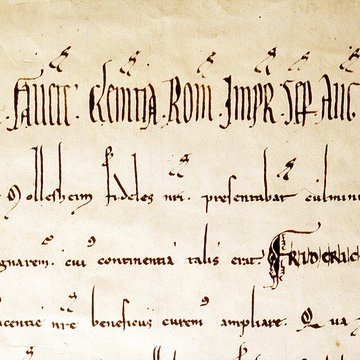 favete clemtia Rom Impr Sep Auc
ollesheim fideles nri presentabat culmini
gnarem. cui continentia talis erat. FRIDERIC
acentie nre beneficiis curem ampliare. Qua